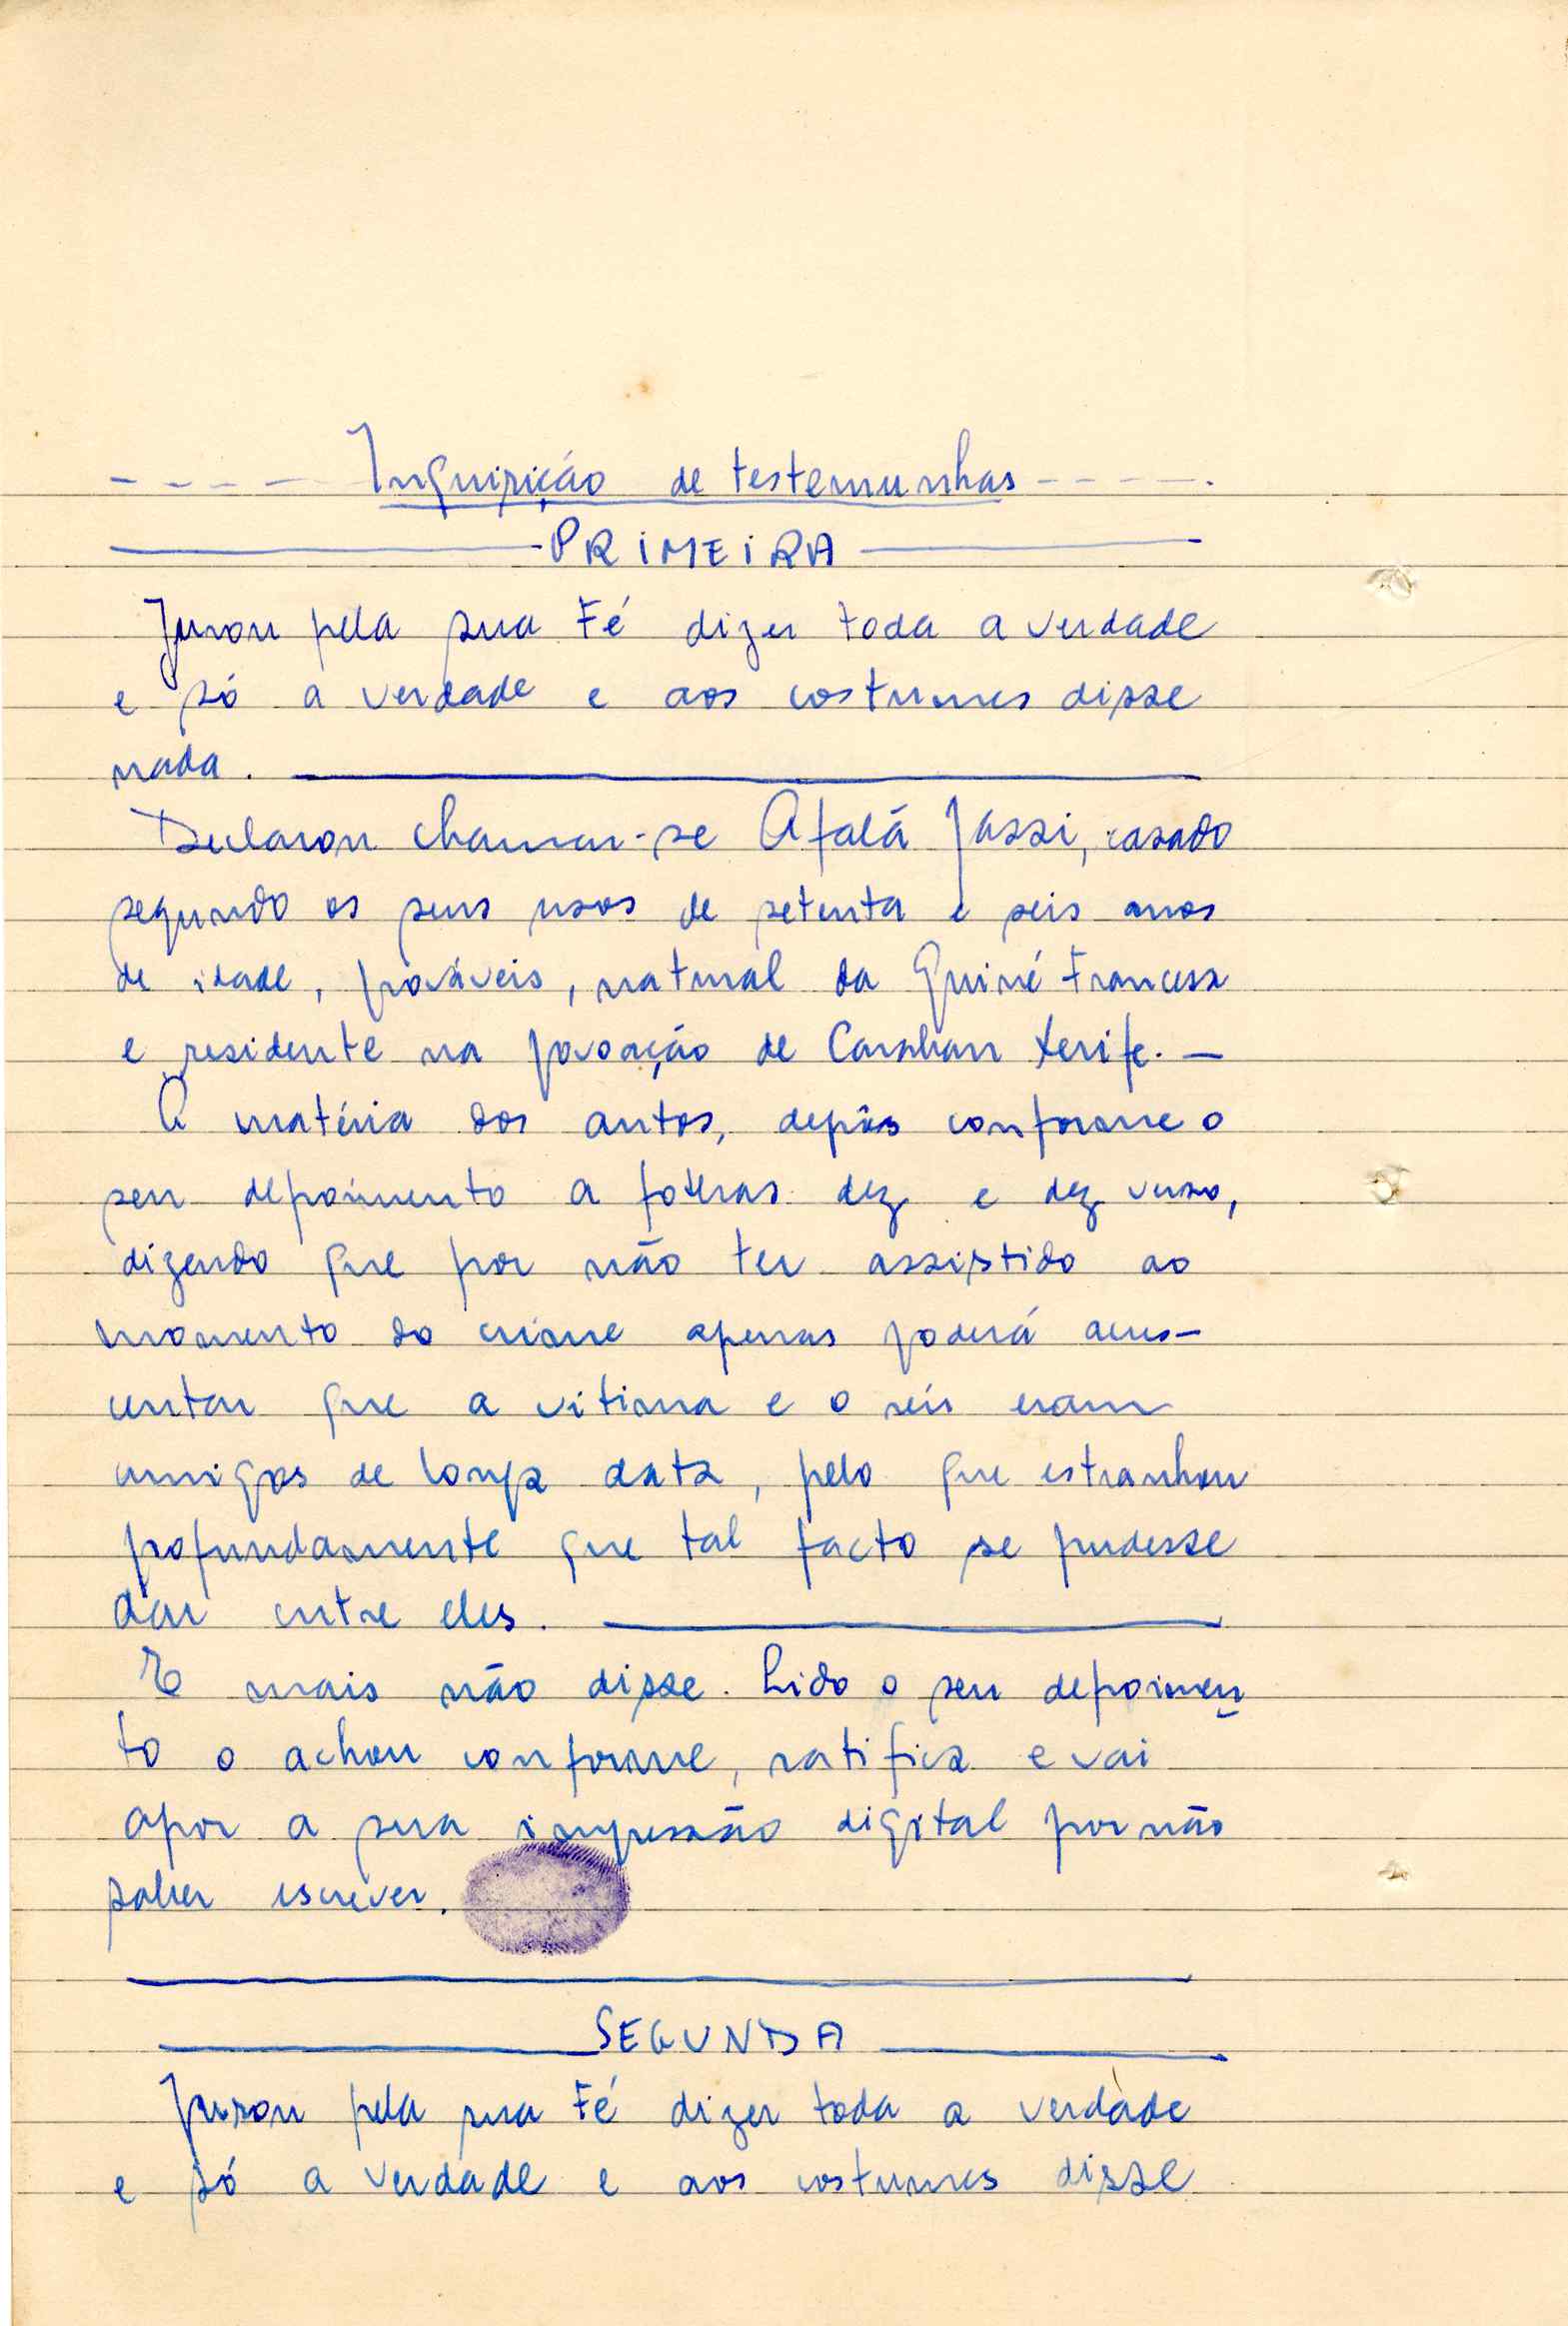 - - - - Inquirição de testemunhas - - - - .
PRIMEIRA
Jurou pela sua Fé dizer toda a verdade
e só a verdade e aos costumes disse
nada.
Declarou chamar-se Afalá Jassi, casado
segundo os seus usos de setenta e seis anos
de idade, prováveis, natural da Guiné Francesa
e residente na povoação de Xerife. —
A matéria dos autos, depôs conforme o
seu depoimento a folhas dez e dez verso,
dizendo que por não ter assistido ao
momento do crime apenas poderá acres-
centar que a vitima e o réu eram
amigos de longa data, pelo que estranhou
profundamente que tal facto se pudesse
dar entre eles.
E mais não disse. Lido o seu depoimen
to o achou conforme, ratifica e vai
apor a sua impressão digital por não
saber escrever.
SEGUNDA
Jurou pela sua Fé dizer toda a verdade
e só a verdade e aos costumes disse